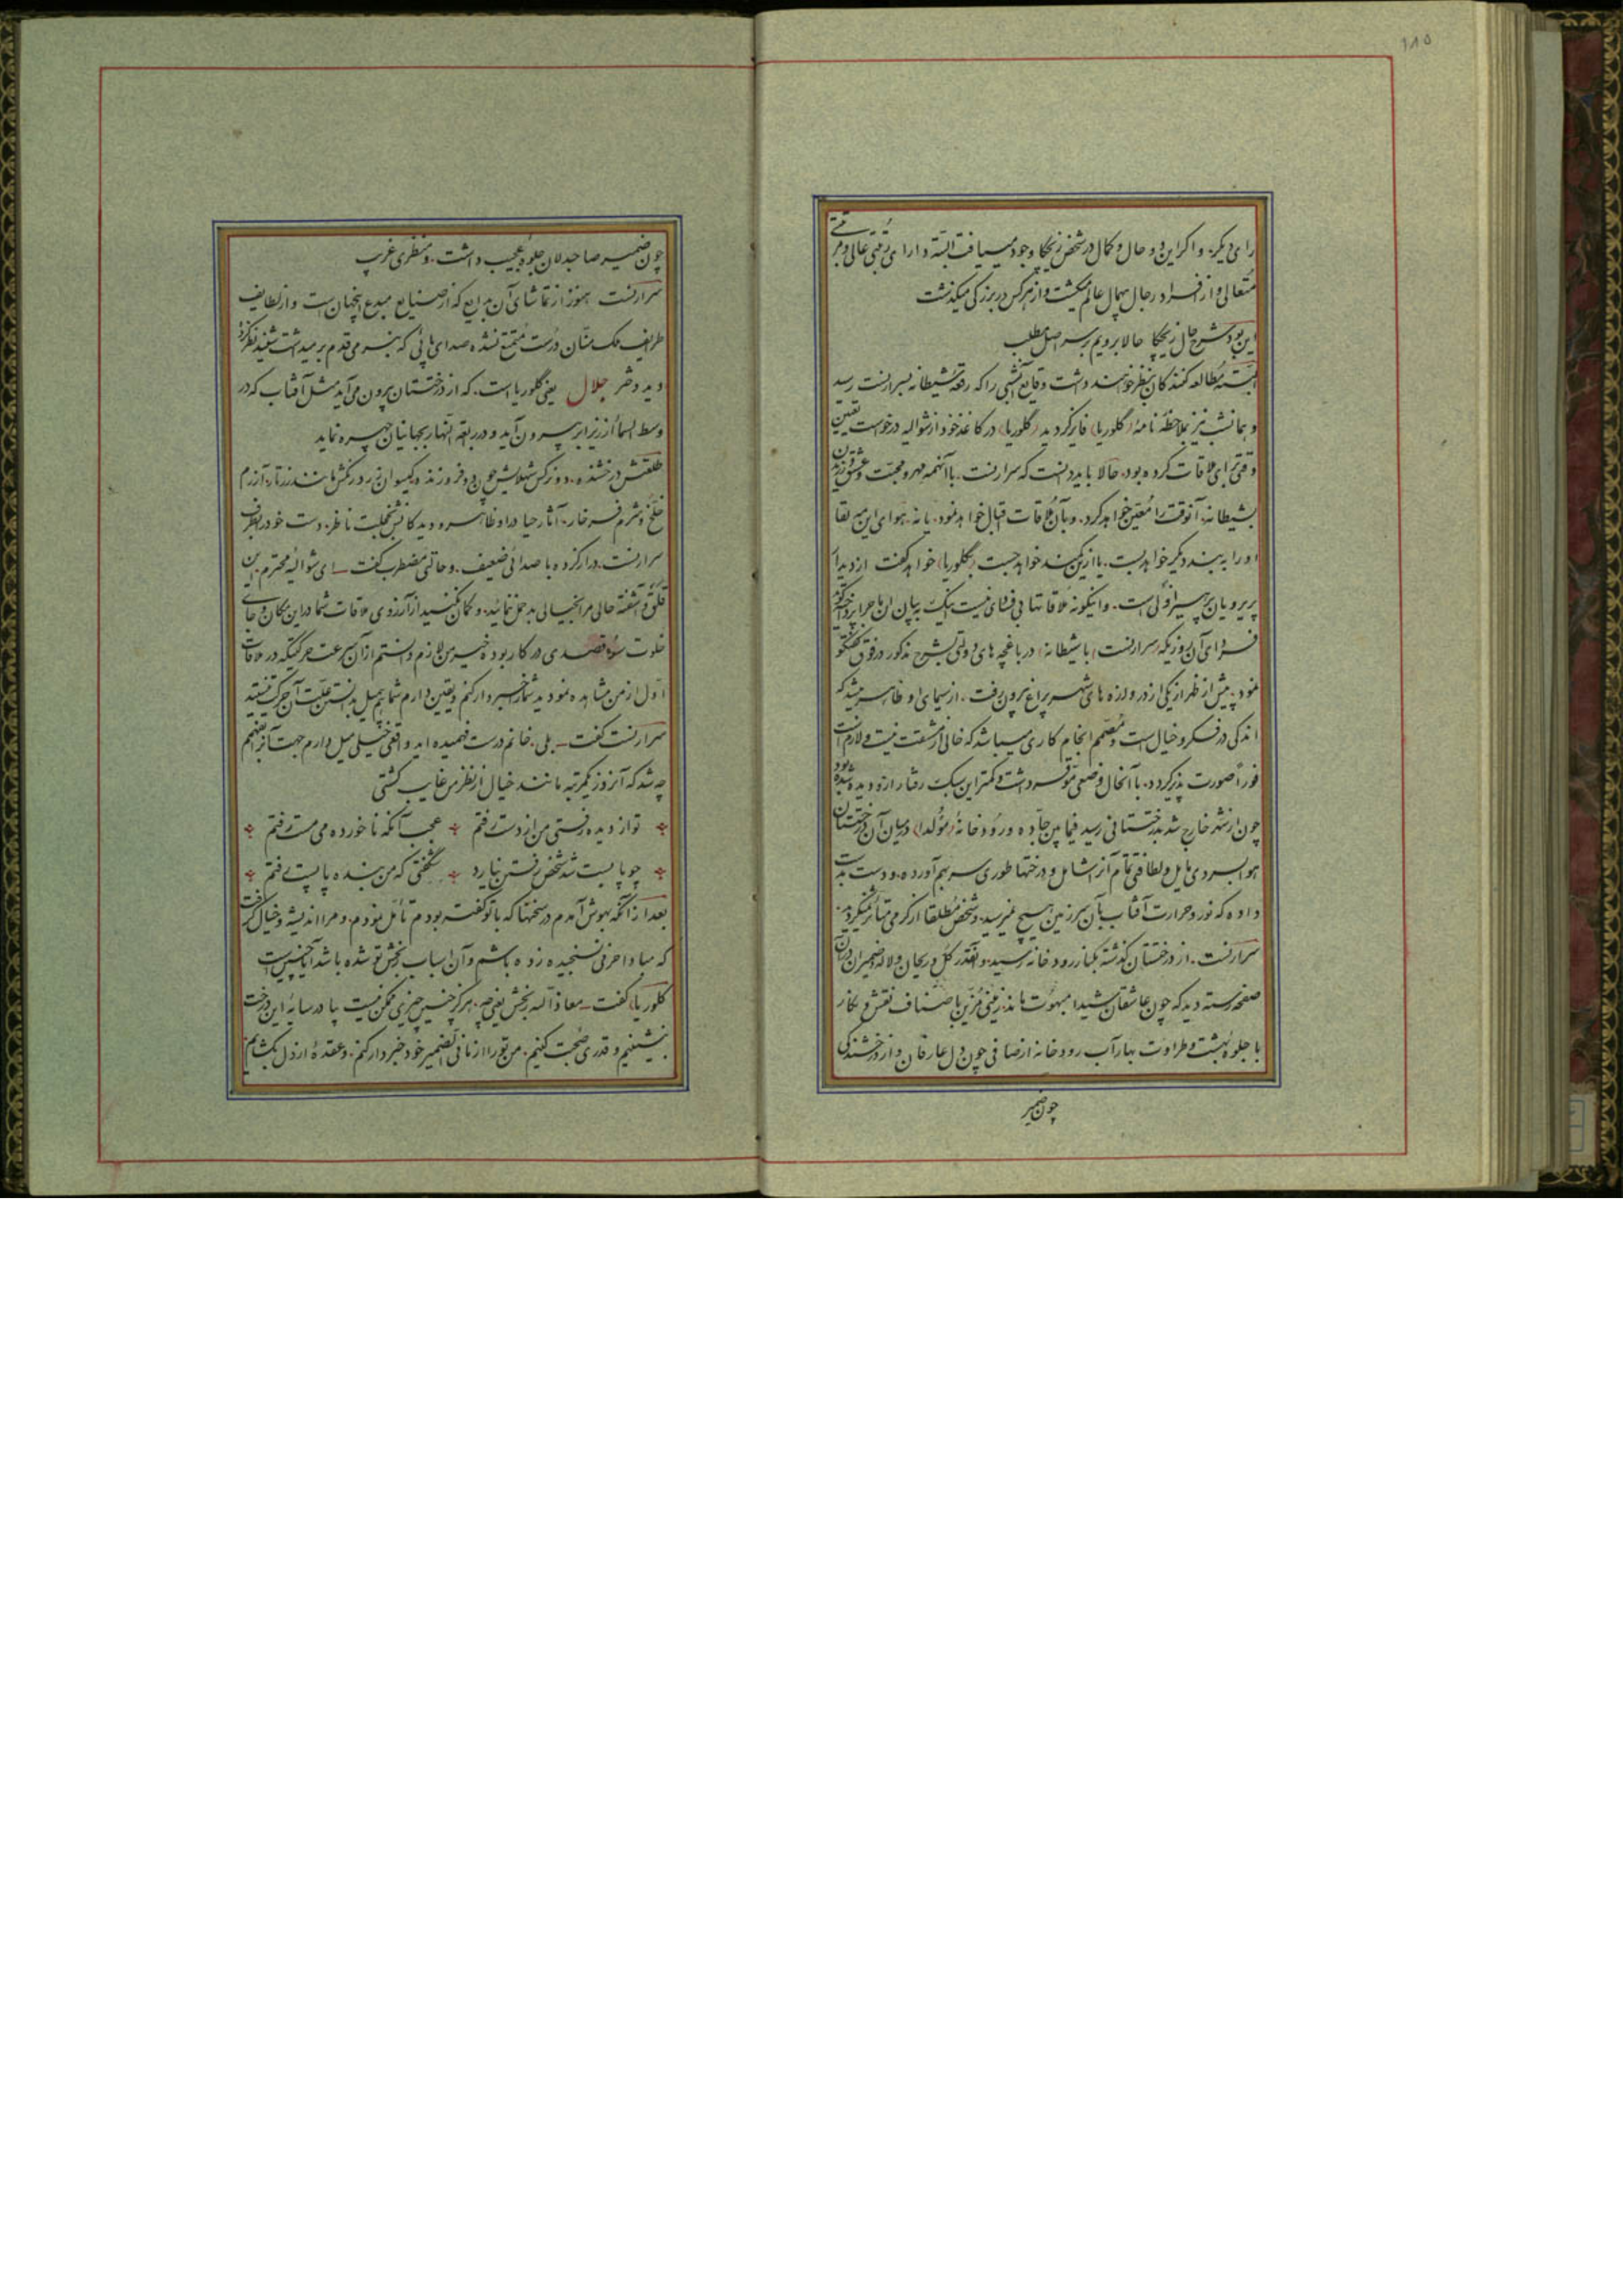 ۱۸۵
رای دیگر. و اگر این دو حال و کمال در شخص زیچکا وجود میافت البته دارای رتبتی عالی و مرتبتی
متعالی و از افراد رجال بیهمال عالم میگشت و از هر کس در بزرگی میگذشت
این بود شرح حال زیچکا حالا برویم بر سر اصل مطلب
البته مطالعه کنندگان بنظر خواهند داشت وقایع آنشبی را که رقعه شیطانه بسرارنست رسید
و همانشب نیز بملاحظه نامه (گلوریا) فایز گردید (گلوریا) در کاغذ خود از شوالیه درخواست تعیین
وقتی برای ملاقات کرده بود. حالا باید دانست که سرارنست. با آنهمه مهر و محبت و عشق ورزیدن
بشیطانه. آنوقت را معین خواهد کرد. و بآن ملاقات اقبال خواهد نمود. یا نه. هوای این سر لقا
او را به بند دیگر خواهد بست. یا ازین کمند خواهد جست (بگلوریا) خواهد گفت از دیدار
پریرویان پرهیز اولی است. و اینگونه ملاقاتها بی فردای نیست اینک به بیان این ماجرا پرداخته گوئیم
فردای آن روزیکه (سرارنست) با (شیطانه) در باغچه های دولتی بشرح مذکور در فوق گفتگو
نمود. پیش از ظهر از یکی از در دروازه های شهر پراغ بیرون رفت. از سیمای او ظاهر میشد که
اندکی در فکر و خیال است و مصمم انجام کاری میباشد که خالی از مشقت نیست و لازم است
فوراً صورت پذیر گردد. با آنحال وضعی موقر داشت و کمتر این سبک رفتار از او دیده شده بود
چون از شهر خارج شد بدرختستانی رسید فیمابین جاده و رودخانه (مولدا) در میان آن درختستان
هوا بسردی مایل و لطافتی تمام آنرا شامل و درختها طوری سر بهم آورده. و دست بدست
داده که نور و حرارت آفتاب بآن سرزمین هیچ نمیرسید. و شخص مطلقا از گرمی متأثر نمیگردید.
سرارنست. از درختستان گذشته بکنار رودخانه رسید. و آنقدر گل و ریحان و لاله و ضمیران در آن
صفحه رسته دید که چون عاشقان شیدا مبهوت ماند. زمینی مزین باصناف نقش و نگار
با جلوه بهشت و طراوت بهار آب رودخانه از صافی چون دل عارفان و از درخشندگی
چون ضمیر
چون ضمیر صاحبدلان جلوه عجیب داشت. و منظری غریب
سرارنست هنوز از تماشای آن بدایع که از صنایع مبدع اینجهان است و از لطایف
ظرایف ملک منّان درست متمتع نشده صدای پائی که بنرمی قدم بر میداشت شنید نظر کرد
دید دختر جلال یعنی گلوریا است. که از درختستان بیرون می آید مثل آفتاب که در
وسط السما از زیر ابر بیرون آید و در رابعة النهار بجهانیان چهره نماید
طلعتش درخشنده. دو نرگس شهلایش چون دو فروزنده. گیسوان زرد رنگش مانند زر تار. آزرم
خلّخ و شرم فرخار. آثار حیا در او ظاهر. و دیدگانش بخجلت ناظر. دست خود را بطرف
سرارنست. دراز کرده با صدائی ضعیف. و حالتی مضطرب گفت ـ ای شوالیه محترم. این
قلق و آشفته حالی مرا بخیالی بد حمل ننمائید. و گمان نکنید از آرزوی ملاقات شما در این مکان و جای
خلوت سوء قصدی در کار بوده خیر من لازم دانستم از آن سرعت حرکتیکه در ملاقات
اول از من مشاهده نمودید شما را خبردار کنم و یقین دارم شما هم میل بدانستن علت آن حرکت هستید
سرارنست گفت ـ بلی. خانم درست فهمیده اید واقعاً خیلی میل دارم جهت آنرا بفهمم
چه شد که آنروز یکمرتبه مانند خیال از نظر من غایب گشتی
تو از دیده رفتی من از دست رفتم عجب آنکه ناخورده می مست رفتم
چو پا بست شد شخص رفتن نیارد شگفتی که من بنده پا بست رفتم
بعد از آنکه بهوش آمدم در سخنها که با تو گفته بودم تأمل نمودم. و مرا اندیشه و خیال گرفت
که مبادا حرفی نسنجیده زده باشم و آن اسباب رنجش تو شده باشد آیا چنین است
گلوریا) گفت ـ معاذ الله رنجش یعنی چه. هرگز چنین چیزی ممکن نیست بیا در سایه این درخت
بنشینیم و قدری صحبت کنیم. من تو را از ما فی الضمیر خود خبردار کنم. و عقده از دل بگشایم